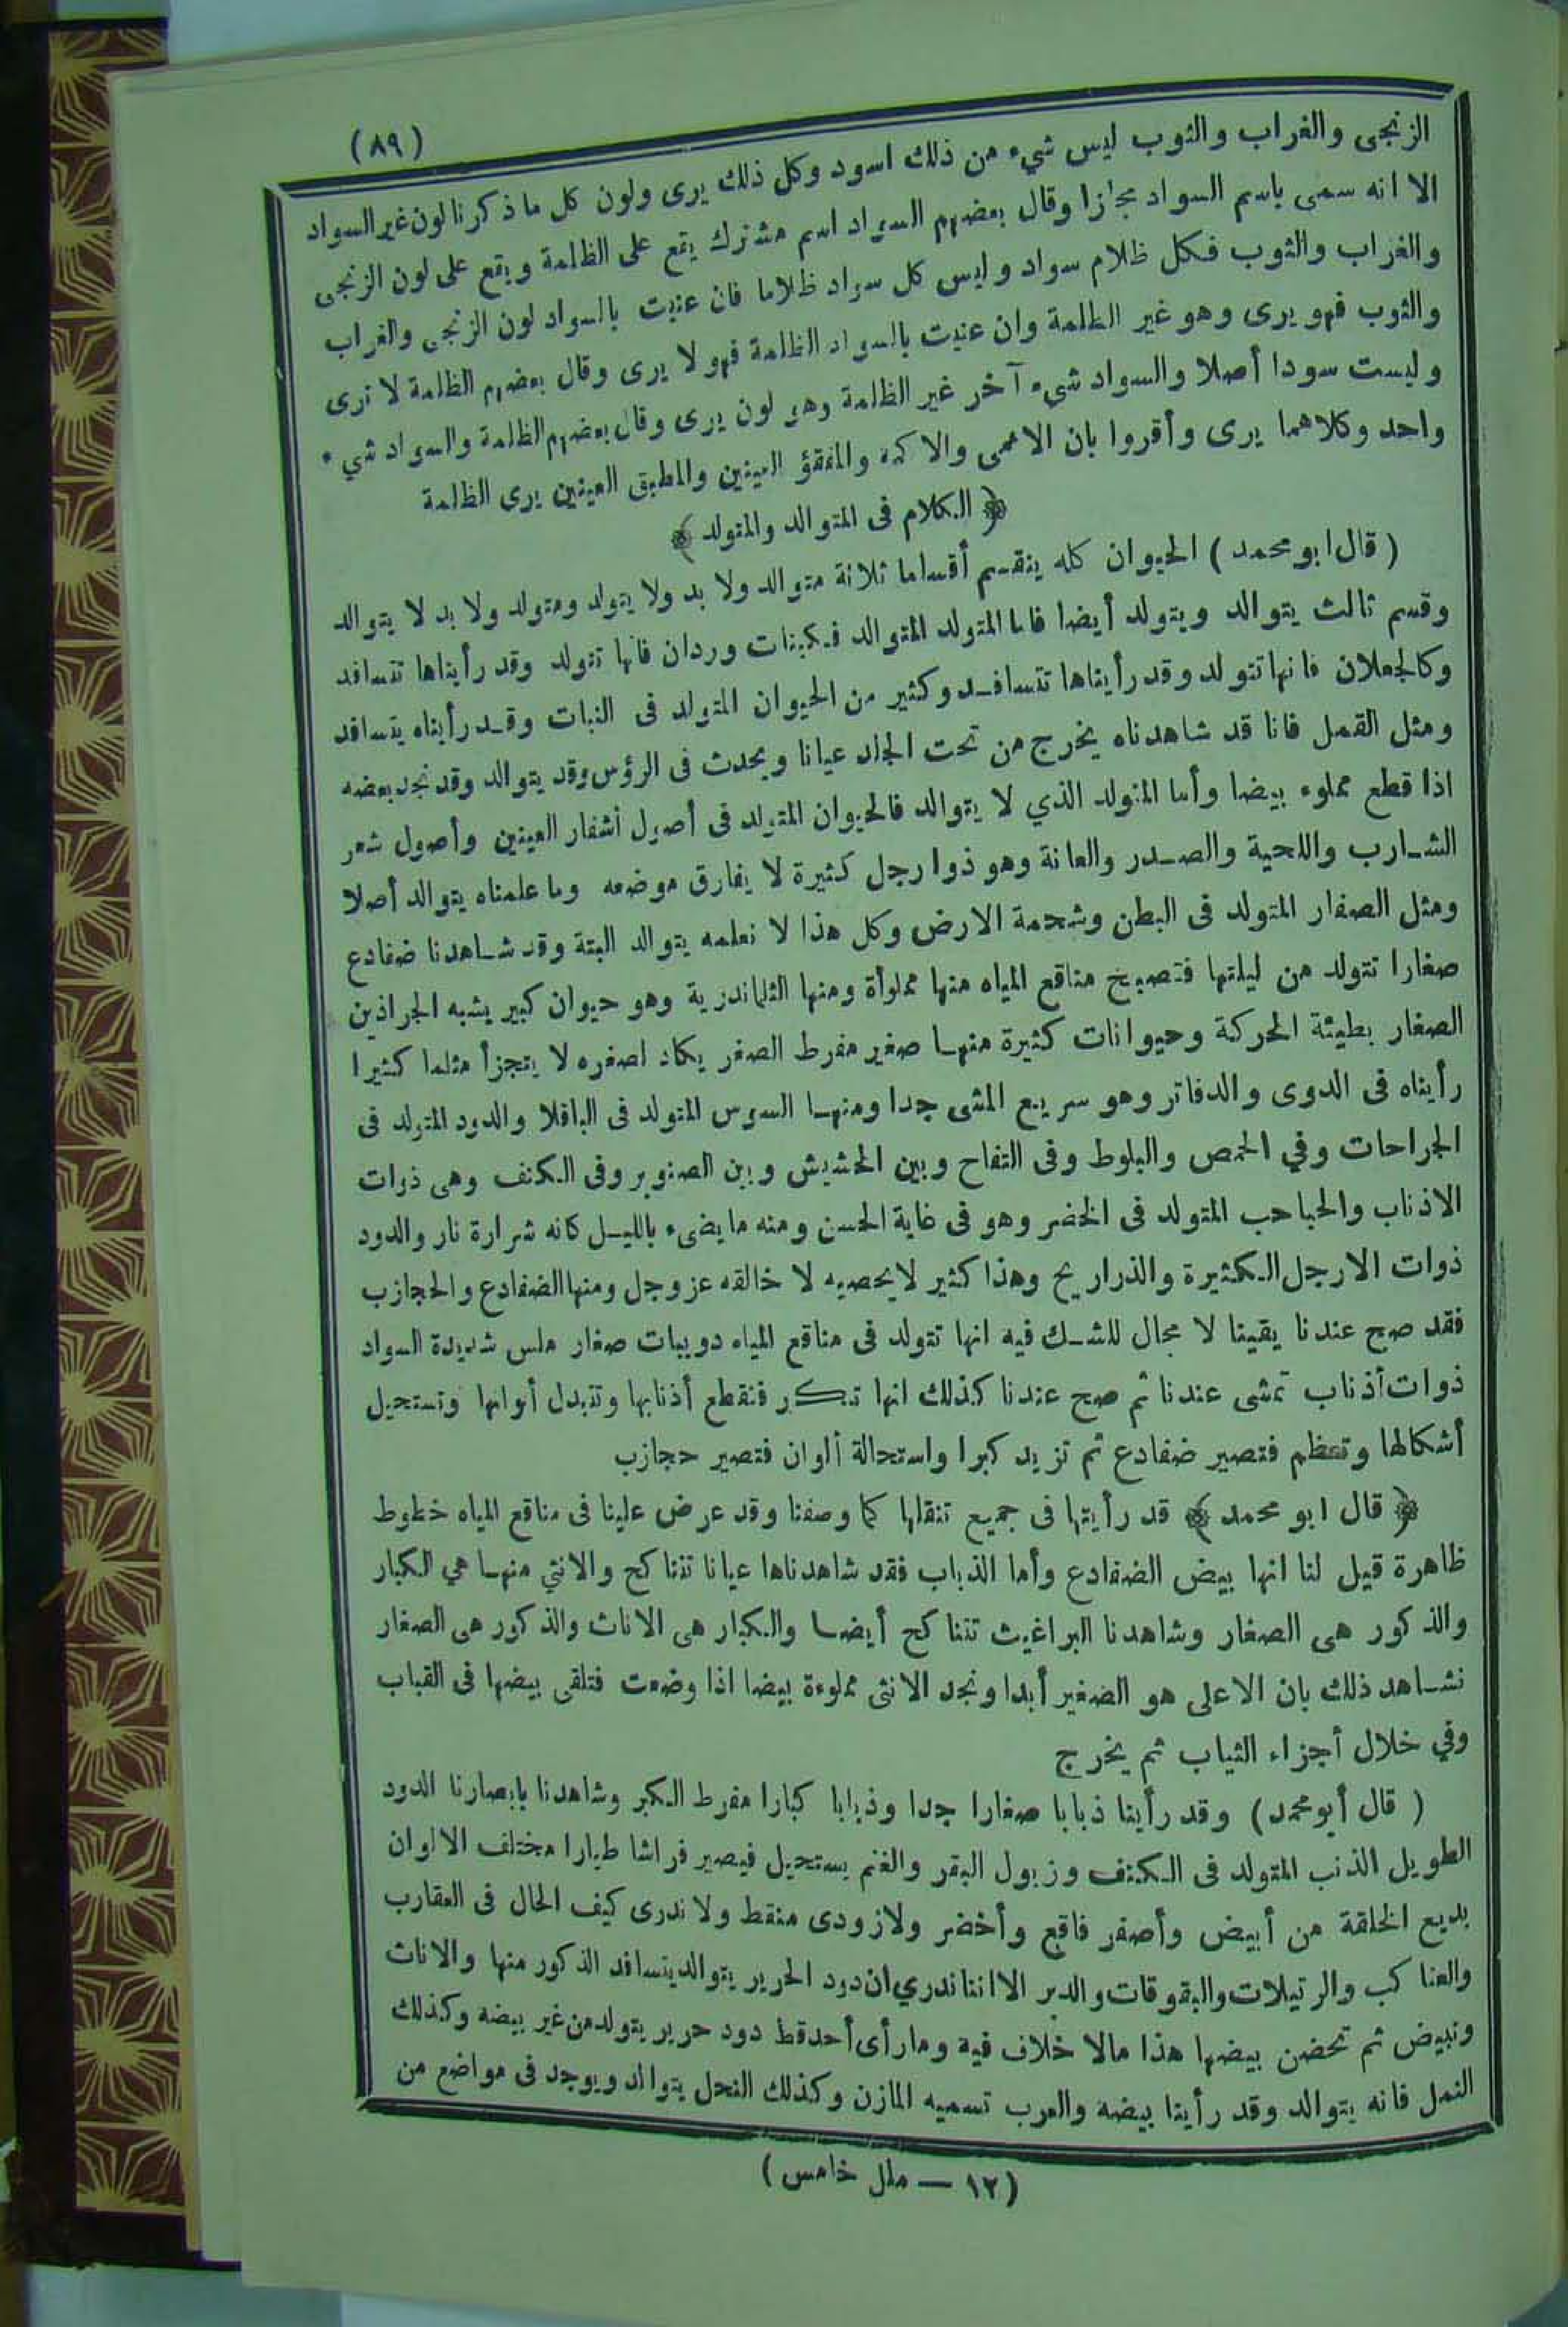 (٨٩)
الزنجى والغراب والثوب ليس شيء من ذلك اسود وكل ذلك يرى ولون كل ما ذكرنا لون غير السواد
الا انه سمى باسم السواد مجازا وقال بعضهم السواد اسم مشترك يقع على الظلمة ويقع على لون الزنجى
والغراب والثوب فكل ظلام سواد وليس كل سواد ظلاما فان عنيت بالسواد لون الزنجى والغراب
والثوب فهو يرى وهو غير الظلمة وان عنيت بالسواد الظلمة فهو لا يرى وقال بعضهم الظلمة لا ترى
وليست سودا أصلا والسواد شيء آخر غير الظلمة وهو لون يرى وقال بعضهم الظلمة والسواد شيء
واحد وكلاهما يرى وأقروا بان الاعمى والاكمه والمفقؤ العينين والمطبق العينين يرى الظلمة
﴿ الكلام فى المتوالد والمتولد ﴾
( قال ابو محمد ) الحيوان كله ينقسم أقساما ثلاثة متوالد ولا بد ولا يتولد ومتولد ولا بد لا يتوالد
وقسم ثالث يتوالد ويتولد أيضا فاما المتولد المتوالد فكبنات وردان فانها تتولد وقد رأيناها تتسافد
وكالجعلان فانها تتولد وقد رأيناها تتسافد وكثير من الحيوان المتولد فى النبات وقد رأيناه يتسافد
ومثل القمل فانا قد شاهدناه يخرج من تحت الجلد عيانا ويحدث فى الرؤس وقد يتوالد وقد نجد بعضه
اذا قطع مملوء بيضا وأما المتولد الذي لا يتوالد فالحيوان المتولد فى أصول أشفار العينين وأصول شعر
الشارب واللحية والصدر والعانة وهو ذوا رجل كثيرة لا يفارق موضعه وما علمناه يتوالد أصلا
ومثل الصفار المتولد فى البطن وشحمة الارض وكل هذا لا نعلمه يتوالد البتة وقد شاهدنا ضفادع
صغارا تتولد من ليلتها فتصبح مناقع المياه منها مملوأة ومنها الثلماندرية وهو حيوان كبير يشبه الجراذين
الصغار بطيئة الحركة وحيوانات كثيرة منها صغير مفرط الصغر يكاد لصغره لا يتجزأ مثلما كثيرا
رأيناه فى الدوى والدفاتر وهو سريع المشى جدا ومنها السوس المتولد فى الباقلا والدود المتولد فى
الجراحات وفي الحمص والبلوط وفى التفاح وبين الحشيش وبين الصنوبر وفى الكنف وهى ذوات
الاذناب والحباحب المتولد فى الخضر وهو فى غاية الحسن ومنه ما يضيء بالليل كانه شرارة نار والدود
ذوات الارجل الكثيرة والذراريح وهذا كثير لا يحصيه لا خالقه عز وجل ومنها الضفادع والحجازب
فقد صح عندنا يقينا لا مجال للشك فيه انها تتولد فى مناقع المياه دويبات صغار ملس شديدة السواد
ذوات أذناب تمشى عندنا ثم صح عندنا كذلك انها تكبر فتقطع أذنابها وتتبدل ألوانها وتستحيل
أشكالها وتعظم فتصير ضفادع ثم تزيد كبرا واستحالة ألوان فتصير حجازب
﴿ قال ابو محمد ﴾ قد رأيتها فى جميع تنقلها كما وصفنا وقد عرض علينا فى مناقع المياه خطوط
ظاهرة قيل لنا انها بيض الضفادع وأما الذباب فقد شاهدناها عيانا تتناكح والانثي منها هي الكبار
والذكور هى الصغار وشاهدنا البراغيث تتناكح أيضا والكبار هى الاناث والذكور هى الصغار
نشاهد ذلك بان الاعلى هو الصغير أبدا ونجد الانثى مملوءة بيضا اذا وضعت فتلقى بيضها فى القباب
وفي خلال أجزاء الثياب ثم يخرج
( قال أبو محمد ) وقد رأينا ذبابا صغارا جدا وذبابا كبارا مفرط الكبر وشاهدنا بابصارنا الدود
الطويل الذنب المتولد فى الكنف وزبول البقر والغنم يستحيل فيصير فراشا طيارا مختلف الالوان
بديع الخلقة من أبيض وأصفر فاقع وأخضر ولازودى منقط ولا ندرى كيف الحال فى العقارب
والعناكب والرتيلات والبقوقات والدبر الا اننا ندري ان دود الحرير يتوالد يتسافد الذكور منها والاناث
وتبيض ثم تحضن بيضها هذا مالا خلاف فيه وما رأى أحد قط دود حرير يتولد من غير بيضه وكذلك
النمل فانه يتوالد وقد رأينا بيضه والعرب تسميه المازن وكذلك النحل يتوالد ويوجد فى مواضع من
(١٢ — ملل خامس)